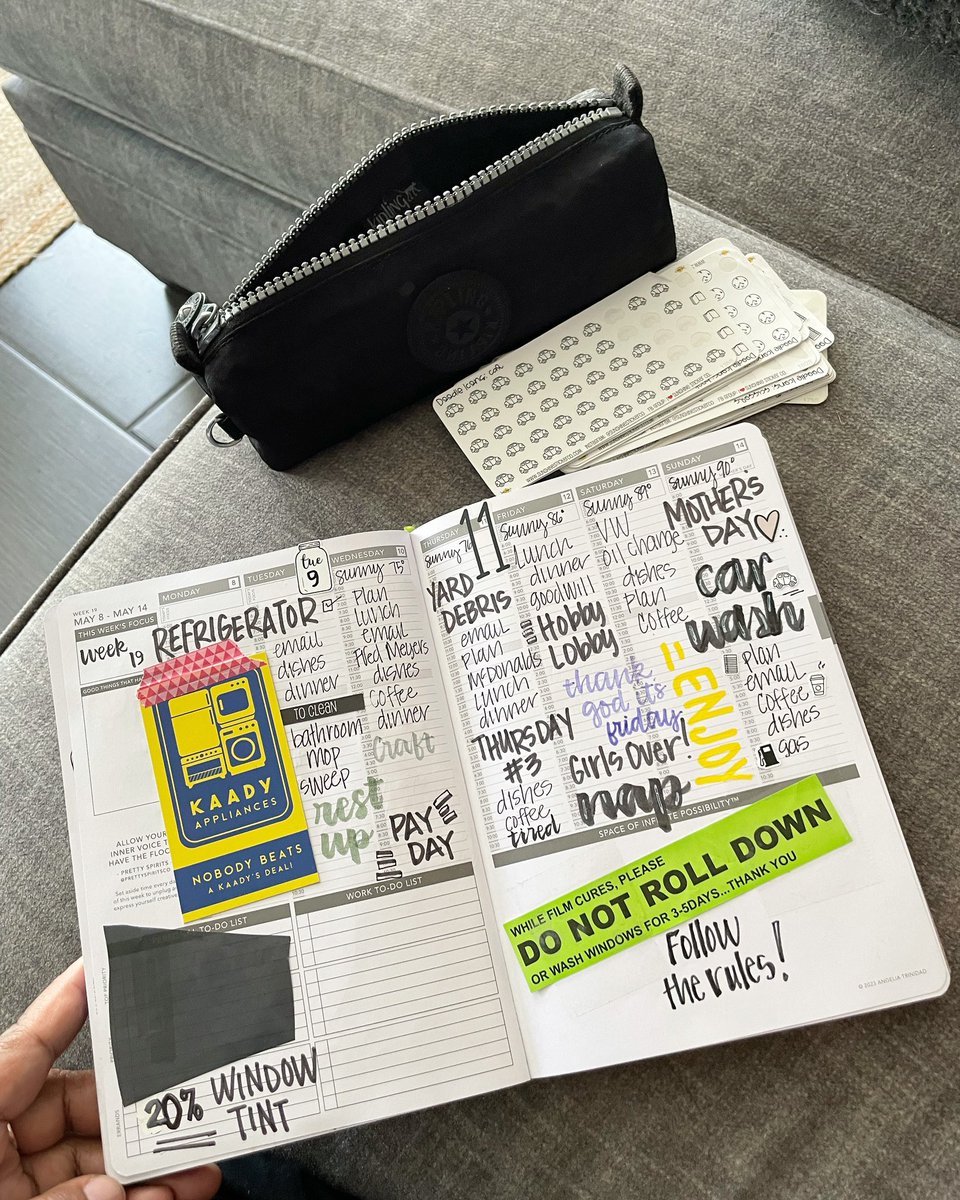 kipling
KIPLING
Doodle Icons, car
WEEK 19
MAY 8 - MAY 14
THIS WEEK'S FOCUS
week 19
MONDAY 8
REFRIGERATOR
KAADY
APPLIANCES
NOBODY BEATS
A KAADY'S DEAL!
ALLOW YOUR
INNER VOICE T
HAVE THE FLOO
- PRETTY SPIRITS
@PRETTYSPIRITSCO
Set aside time every d
of this week to unplug a
express yourself creative
TUESDAY
tue
9
email
dishes
dinner
TO CLEAN
bathroom
mop
sweep
rest
up
WEDNESDAY 10
sunny 75°
plan
lunch
email
Fred Meyers
dishes
coffee
dinner
craft
PAY
DAY
TO-DO LIST
TOP PRIORITY
ERRANDS
20% WINDOW
TINT
WORK TO-DO LIST
THURSDAY
11
sunny 76
YARD
DEBRIS
email
plan
McDonalds
lunch
dinner
THURSDAY
#3
dishes
coffee
tired
FRIDAY 12
sunny 86°
lunch
dinner
goodwill
Hobby
Lobby
thank
god it's
friday
Girls Over!
naps
SATURDAY 13
sunny 89°
VW
oil change
dishes
plan
coffee
= ENJOY
SUNDAY 14
sunny 90°
MOTHER'S
DAY
car
wash
plan
email
coffee
dishes
gas
SPACE OF INFINITE POSSIBILITY™
WHILE FILM CURES, PLEASE
DO NOT ROLL DOWN
OR WASH WINDOWS FOR 3-5DAYS...THANK YOU
Follow
the rules!
© 2023 ANGELIA TRINIDAD